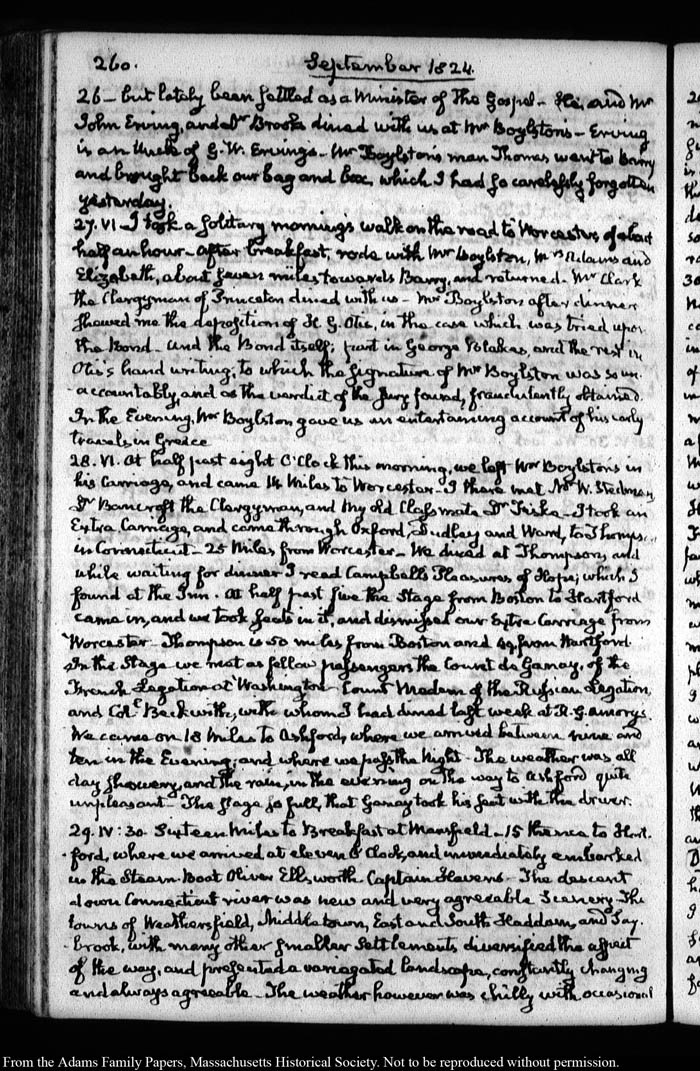 260. September 1824.
26 – but lately been settled as a Minister of the Gospel – He, and Mr
John Erving, and Dr Brooks dined with us at Mr Boylston's – Erving
is an Uncle of G. W. Ervings – Mr Boylston's man Thomas went to Barry
and brought back our bag and box, which I had so carelessly forgotten
yesterday.
27. VI – I took a solitary morning's walk on the road to Worcester, of about
half an hour – After breakfast, rode with Mr Boylston, Mrs Adams and
Elizabeth, about seven miles towards Barry, and returned. Mr Clark
the Clergyman of Princeton dined with us – Mr Boylston after dinner
shewed me the deposition of H. G. Otis, in the case which was tried upon
the Bond – and the Bond itself; part in George Blakes, and the rest in
Otis's hand writing; to which the signature of Mr Boylston was so un-
accountably, and as the verdict of the Jury found, fraudulently obtained.
In the Evening, Mr Boylston gave us an entertaining account of his early
travels in Greece
28. VI. At half past eight O'Clock this morning, we left Mr Boylstons in
his Carriage, and came 14 Miles to Worcester – I there met Mr W. Stedman,
Dr Bancroft the Clergyman, and my old Classmate Dr Fiske – I took an
Extra Carriage, and came through Oxford, Dudley and Ward, to Thomps.
in Connecticut – 25 Miles from Worcester – We dined at Thompson; and
while waiting for dinner I read Campbell's Pleasures of Hope; which I
found at the Inn. At half past five the Stage from Boston to Hartford
came in, and we took seats in it, and dismissed our Extra Carriage from
Worcester – Thompson is 50 miles from Boston and 49 from Hartford.
In the Stage we met as fellow passengers the Count de Ganay, of the
French Legation at Washington – Count Medem of the Russian Legation,
and Colo. Beckwith, with whom I had dined last week at R. G. Amorys.
We came on 18 Miles to Ashford, where we arrived between nine and
ten in the Evening; and where we pass the Night – The weather was all
day showery, and the rain, in the evening on the way to Ashford quite
unpleasant – The stage so full, that Ganay took his seat with the driver.
29. IV: 30. Sixteen Miles to Breakfast at Mansfield – 15 thence to Hart-
ford, where we arrived at eleven O'Clock, and immediately embarked
in the Steam-Boat Oliver Ellsworth Captain Havens – The descent
down Connecticut river was new and very agreeable Scenery – The
towns of Weathersfield, Middletown, East and South Haddam, and Say-
brook, with many other smaller settlements diversified the aspect
of the way, and presented a variegated landscape, constantly changing
and always agreeable – The weather however was chilly with occasional
From the Adams Family Papers, Massachusetts Historical Society. Not to be reproduced without permission.